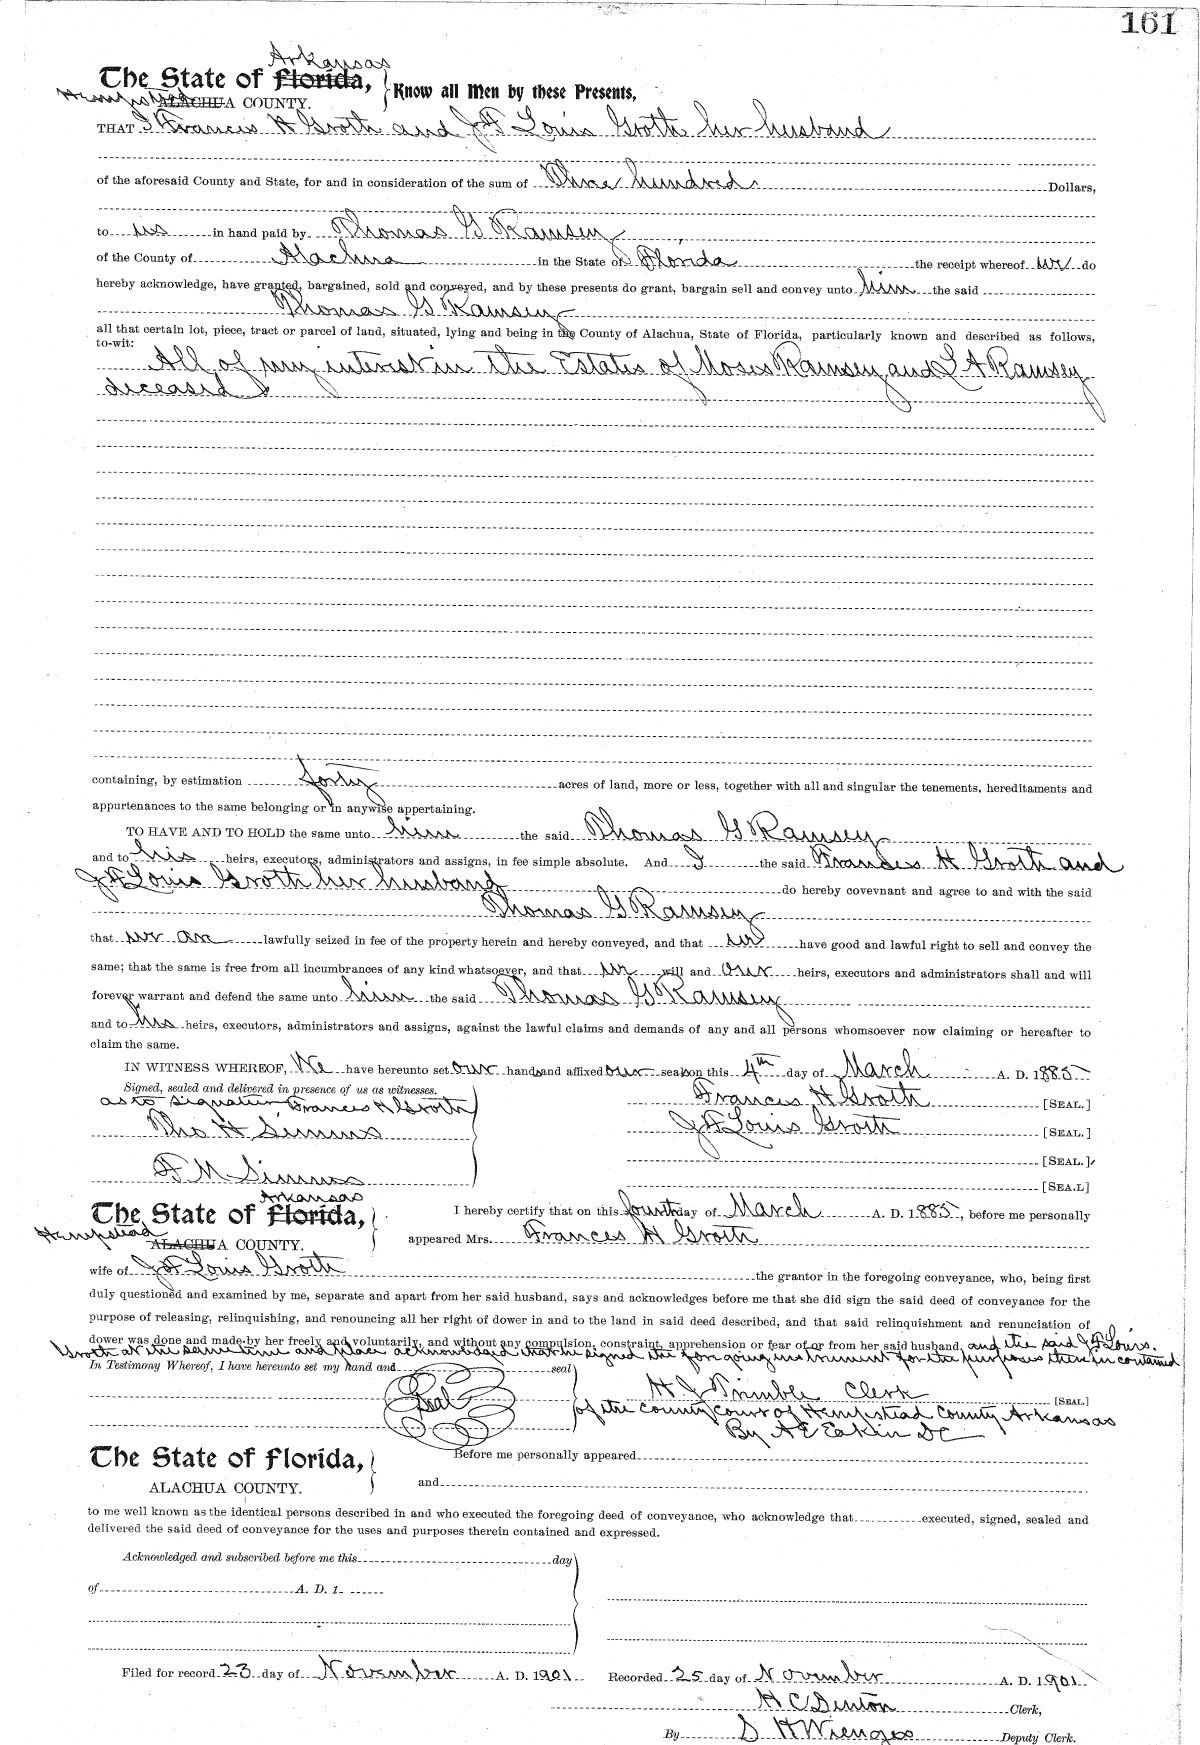 161
Arkansas
The State of Florida, Know all Men by these Presents,
Hempstead
ALACHUA COUNTY.
THAT I Frances H Groth and J F Louis Groth her husband
of the aforesaid County and State, for and in consideration of the sum of Three hundred Dollars,
to us in hand paid by Thomas G Ramsey
of the County of Alachua in the State of Florida the receipt whereof we do
hereby acknowledge, have granted, bargained, sold and conveyed, and by these presents do grant, bargain sell and convey unto him the said
Thomas G Ramsey
all that certain lot, piece, tract or parcel of land, situated, lying and being in the County of Alachua, State of Florida, particularly known and described as follows,
to-wit:
All of my interest in the Estates of Moses Ramsey and L A Ramsey
diceased
containing, by estimation forty acres of land, more or less, together with all and singular the tenements, hereditaments and
appurtenances to the same belonging or in anywise appertaining.
TO HAVE AND TO HOLD the same unto him the said Thomas G Ramsey
and to his heirs, executors, administrators and assigns, in fee simple absolute. And I the said Frances H Groth and
J F Louis Groth her husband do hereby covevnant and agree to and with the said
Thomas G Ramsey
that we are lawfully seized in fee of the property herein and hereby conveyed, and that we have good and lawful right to sell and convey the
same; that the same is free from all incumbrances of any kind whatsoever, and that we will and our heirs, executors and administrators shall and will
forever warrant and defend the same unto him the said Thomas G Ramsey
and to his heirs, executors, administrators and assigns, against the lawful claims and demands of any and all persons whomsoever now claiming or hereafter to
claim the same.
IN WITNESS WHEREOF, We have hereunto set our hands and affixed our seals on this 4th day of March A. D. 1885
Signed, sealed and delivered in presence of us as witnesses. Frances H Groth [SEAL.]
as to signature Frances H Groth
Tho H Simms J F Louis Groth [SEAL.]
[SEAL.]
F M Simms
[SEA.L]
Arkansas
The State of Florida, I hereby certify that on this fourth day of March A. D. 1885, before me personally
Hempstead
ALACHUA COUNTY. appeared Mrs. Frances H Groth
wife of J F Louis Groth the grantor in the foregoing conveyance, who, being first
duly questioned and examined by me, separate and apart from her said husband, says and acknowledges before me that she did sign the said deed of conveyance for the
purpose of releasing, relinquishing, and renouncing all her right of dower in and to the land in said deed described, and that said relinquishment and renunciation of
dower was done and made by her freely and voluntarily, and without any compulsion, constraint, apprehension or fear of or from her said husband, and the said J F Louis.
Groth at the same time and place acknowledged that he signed the foregoing instrument for the purposes therein contained
In Testimony Whereof, I have hereunto set my hand and seal
Seal
H J Trimble Clerk [SEAL.]
of the county court of Hempstead County Arkansas
By A E Eakin DC
The State of Florida, Before me personally appeared
ALACHUA COUNTY. and
to me well known as the identical persons described in and who executed the foregoing deed of conveyance, who acknowledge that executed, signed, sealed and
delivered the said deed of conveyance for the uses and purposes therein contained and expressed.
Acknowledged and subscribed before me this day
of A. D. 1
Filed for record 23 day of November A. D. 1901 Recorded 25 day of November A. D. 1901
H C Denton Clerk,
By S H Wienges Deputy Clerk.